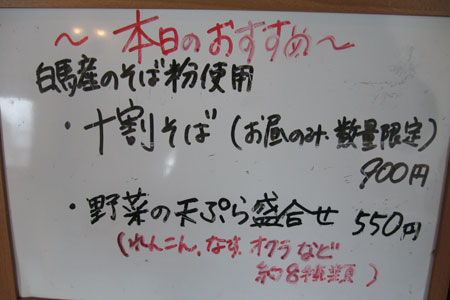 ～本日のおすすめ～
白馬産のそば粉使用
・十割そば(お昼のみ、数量限定)
900円
・野菜の天ぷら盛合せ 550円
(れんこん、なす、オクラなど
約8種類)